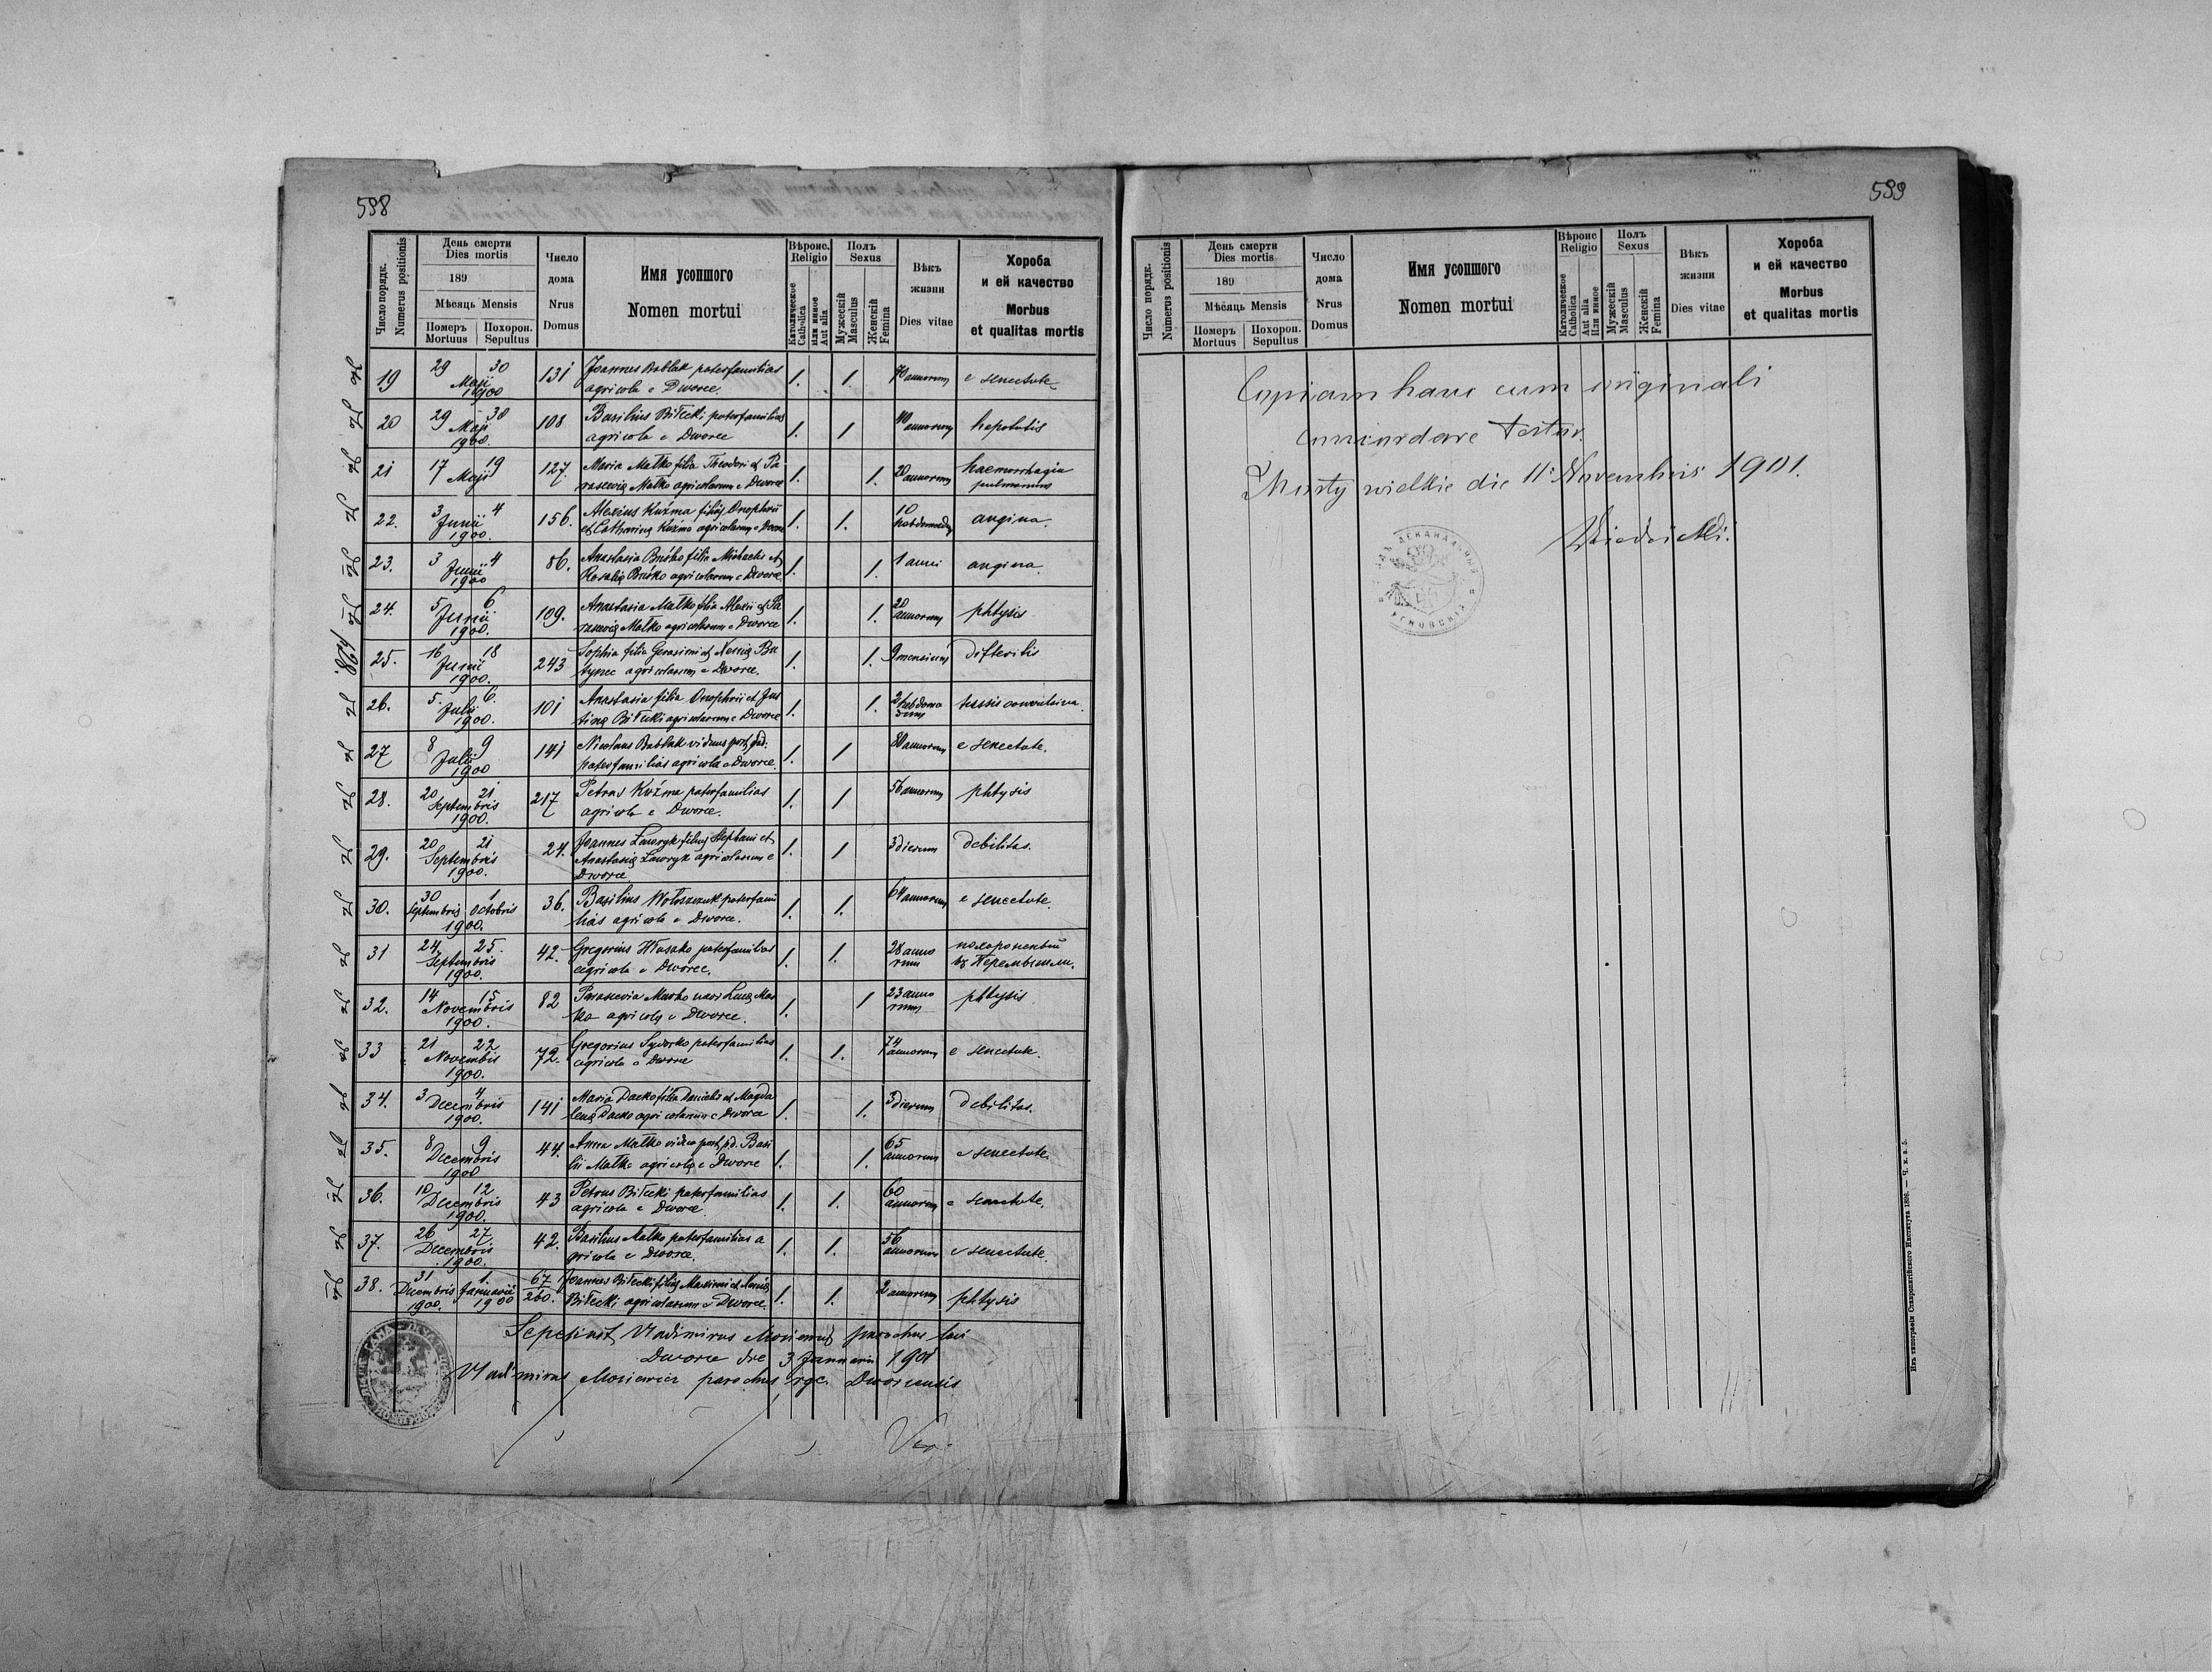 598
Число порядк.
Numerus positionis
День смерти
Dies mortis
189
Мѣсяць Mensis
Померъ Похорон.
Mortuus Sepultus
Число
дома
Nrus
Domus
Имя усопшого
Nomen mortui
Вѣроис.
Religio
Католическое
Catholica
Или инное
Aut alia
Полъ
Sexus
Мужескій
Masculus
Женскій
Femina
Вѣкъ
жизни
Dies vitae
Хороба
и ей качество
Morbus
et qualitas mortis
19 29 30 131 Joannes Bablak paterfamilias 1. 1. annorum e senectute
Maji agricola e Dworce.
1900
20 29 30 108 Basilius Biłecki paterfamilias 1. 1 annorum hepatitis
Maji agricola e Dworce
1900.
21 17 19 127. Maria Matko filia Theodori et Pa 1. 1. 20 annorum haemorrhagia
Maji rasceviae Matko agricolarum e Dworce pulmonum
22. 3 4 156. Alexius Kuźma filius Onophrii 1. 1. 10 angina.
Junii et Catharinae Kuźma agricolarum e Dworce hebdomadum
1900.
23. 3 4 86. Anastasia Buśko filia Michaelis et 1. 1. 1 anni angina.
Junii Rosaliae Buśko agricolarum e Dworce
1900
24. 5 6 109. Anastasia Matko filia Alexii et Pa 1. 1. 20 phtysis
Junii rasceviae Matko agricolarum e Dworce annorum
1900.
25. 16 18 243 Sophia filia Gerasimi et 1. 1. 9 mensium difteritis
Junii agricolarum e Dworce.
1900.
26. 5. 6. 101 Anastasia filia Onophrii et Jus 1. 1. 2 hebdoma tussis convulsiva.
Julii tinae Biłecki agricolarum e Dworce dum
1900.
27 8 9 141 Nicolaus Bablak viduus post 1. 1 80 annorum e senectute.
Julii paterfamilias agricola e Dworce.
1900
28. 20 21 217 Petrus Kuźma paterfamilias 1. 1 56 annorum phtysis
Septembris agricola e Dworce.
1900.
29. 20 21 24. Joannes Lawryk filius Stephani et 1. 1 3 dierum debilitas.
Septembris Anastasiae Lawryk agricolarum e
1900. Dworce
30. 30 1 36. Basilius Wołoszczuk paterfami 1. 1. 64 annorum e senectute.
Septembris Octobris lias agricola e Dworce.
1900.
31 24 25. 42. Gregorius paterfamilias 1. 1. 28 anno похороненый
Septembris agricola e Dworce. rum въ Перемышли.
1900.
32. 14 15 82 Parascevia uxor Lucae 1. 1 23 anno phtysis
Novembris agricolae e Dworce. rum
1900.
33 21 22 72. Gregorius Sydorko paterfamilias 1. 1. 74 e senectute.
Novembris agricola e Dworce annorum
1900.
34. 3 4 141 Maria Dacko filia Danielis et Magda 1. 1. 3 dierum debilitas.
Decembris lenae Dacko agricolarum e Dworce
1900.
35. 8 9 44. Anna Matko vidua post Basi 1. 1. 65 e senectute.
Decembris lii Matko agricolae e Dworce annorum
1900
36. 10 12 43 Petrus Biłecki paterfamilias 1. 1. 60 e senectute.
Decembris agricola e Dworce annorum
1900.
37. 26 27 42. Basilius Matko paterfamilias a 1. 1. 56 e senectute.
Decembris gricola e Dworce. annorum
1900.
38. 31 1. 67 Joannes Biłecki filius Maximi et 1. 1. 2 annorum phtysis
Decembris Januarii 260. Biłecki agricolarum e Dworce.
1900. 1900
Sepelivit Vladimirus Mosiewicz parochus loci
Dworce die 3 Januarii 1901
Vladimirus Mosiewicz parochus rgc. Dworcensis
599
Число порядк.
Numerus positionis
День смерти
Dies mortis
189
Мѣсяць Mensis
Померъ Похорон.
Mortuus Sepultus
Число
дома
Nrus
Domus
Имя усопшого
Nomen mortui
Вѣроис
Religio
Католическое
Catholica
Aut alia
Или инное
Полъ
Sexus
Мужескій
Masculus
Женскій
Femina
Вѣкъ
жизни
Dies vitae
Хороба
и ей качество
Morbus
et qualitas mortis
Copiam hanc cum originali
concordare testor.
Mosty wielkie die 11 Novembris 1901.
Изъ типографіи Ставропигійского Института 1896. — Ч. к. а. 5.